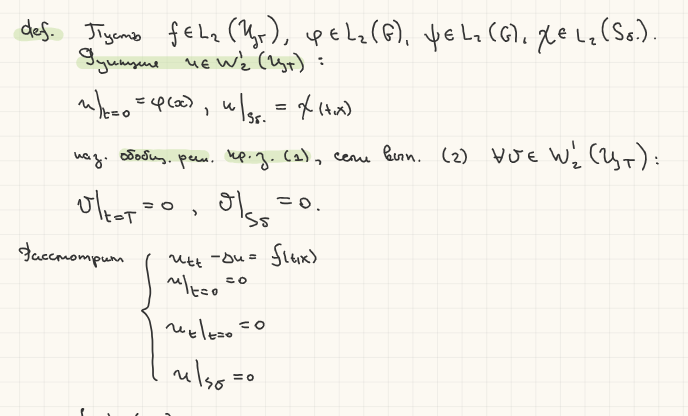 def. Пусть f ∈ L₂(Ц_T), φ ∈ L₂(G), ψ ∈ L₂(G), χ ∈ L₂(S_б.).
Функция u ∈ W₂¹(Ц_T) :
u|_{t=0} = φ(x) , u|_{Sб.} = χ(t,x)
наз. обобщ. реш. кр. з. (1), если вып. (2) ∀v ∈ W₂¹(Ц_T):
v|_{t=T} = 0 , v|_{Sб} = 0.
Рассмотрим { u_{tt} - Δu = f(t,x)
u|_{t=0} = 0
u_t|_{t=0} = 0
u|_{Sб} = 0